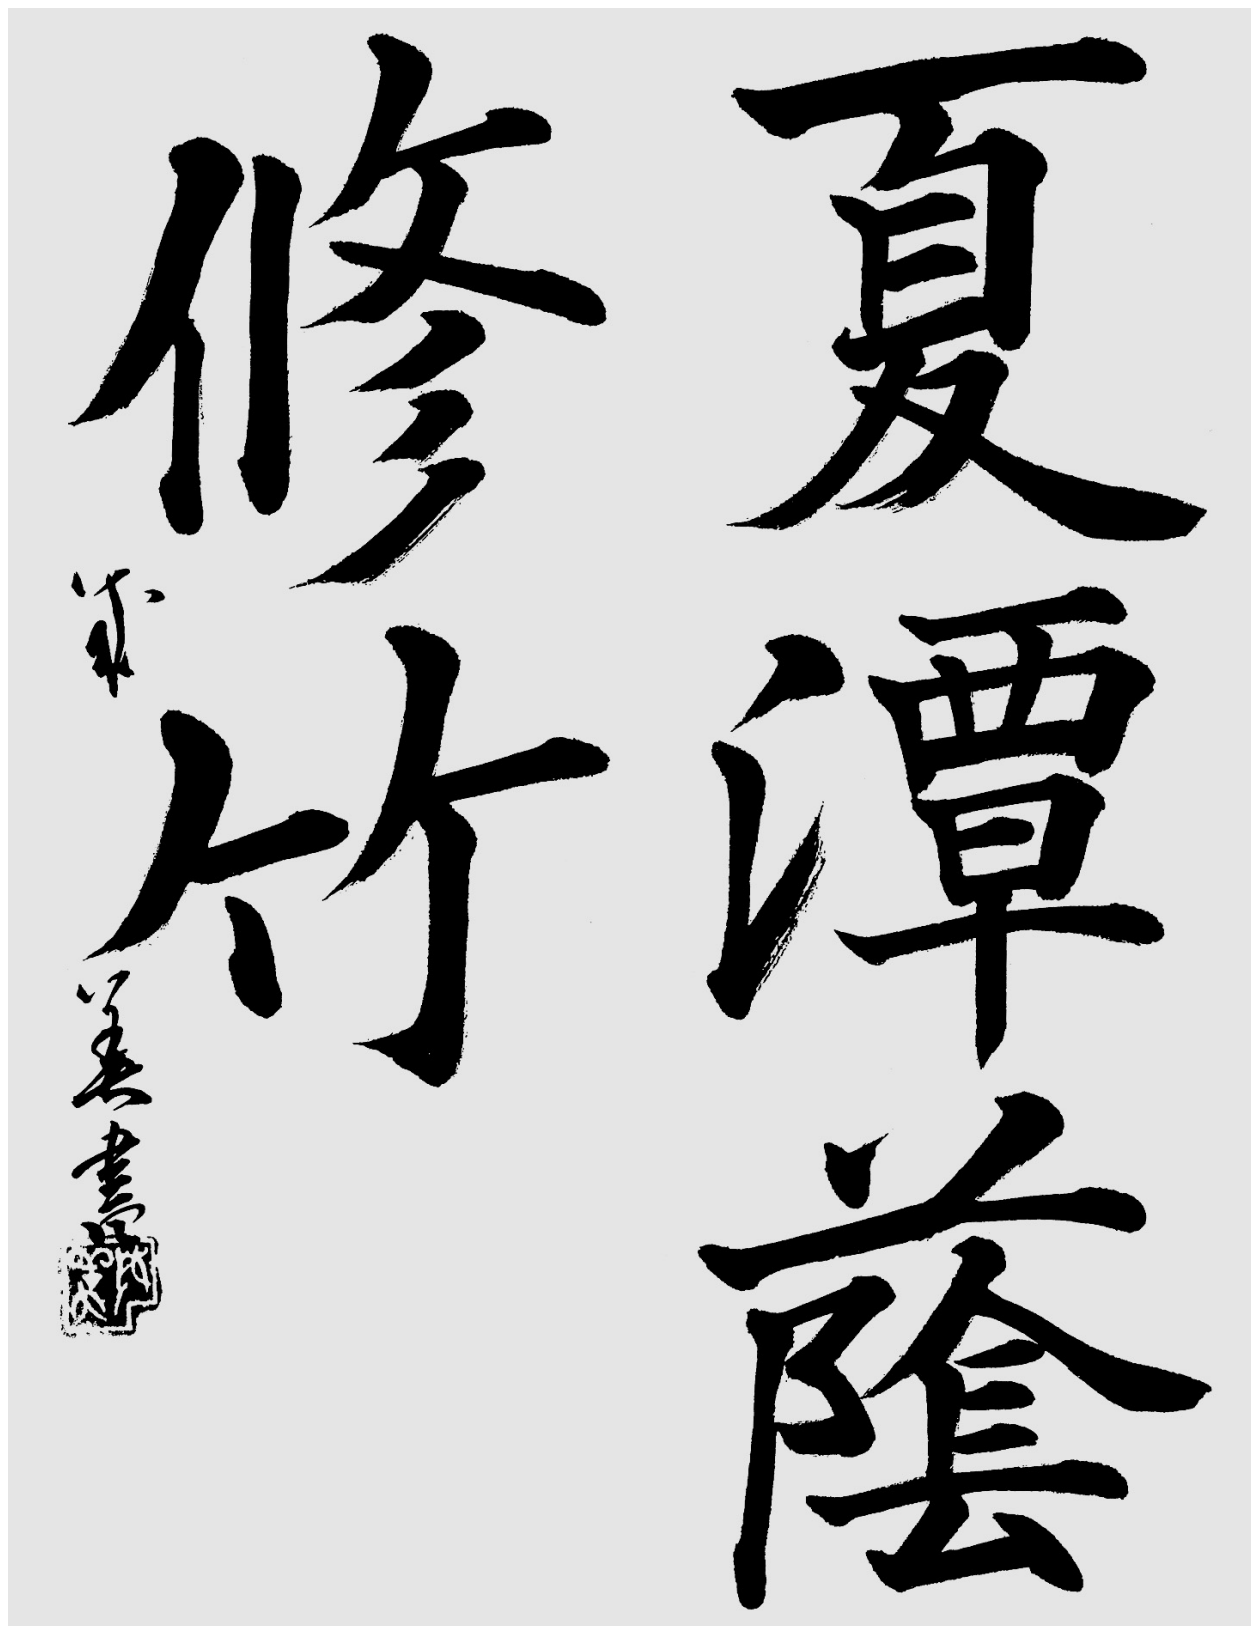 夏潭蔭
修竹
美書